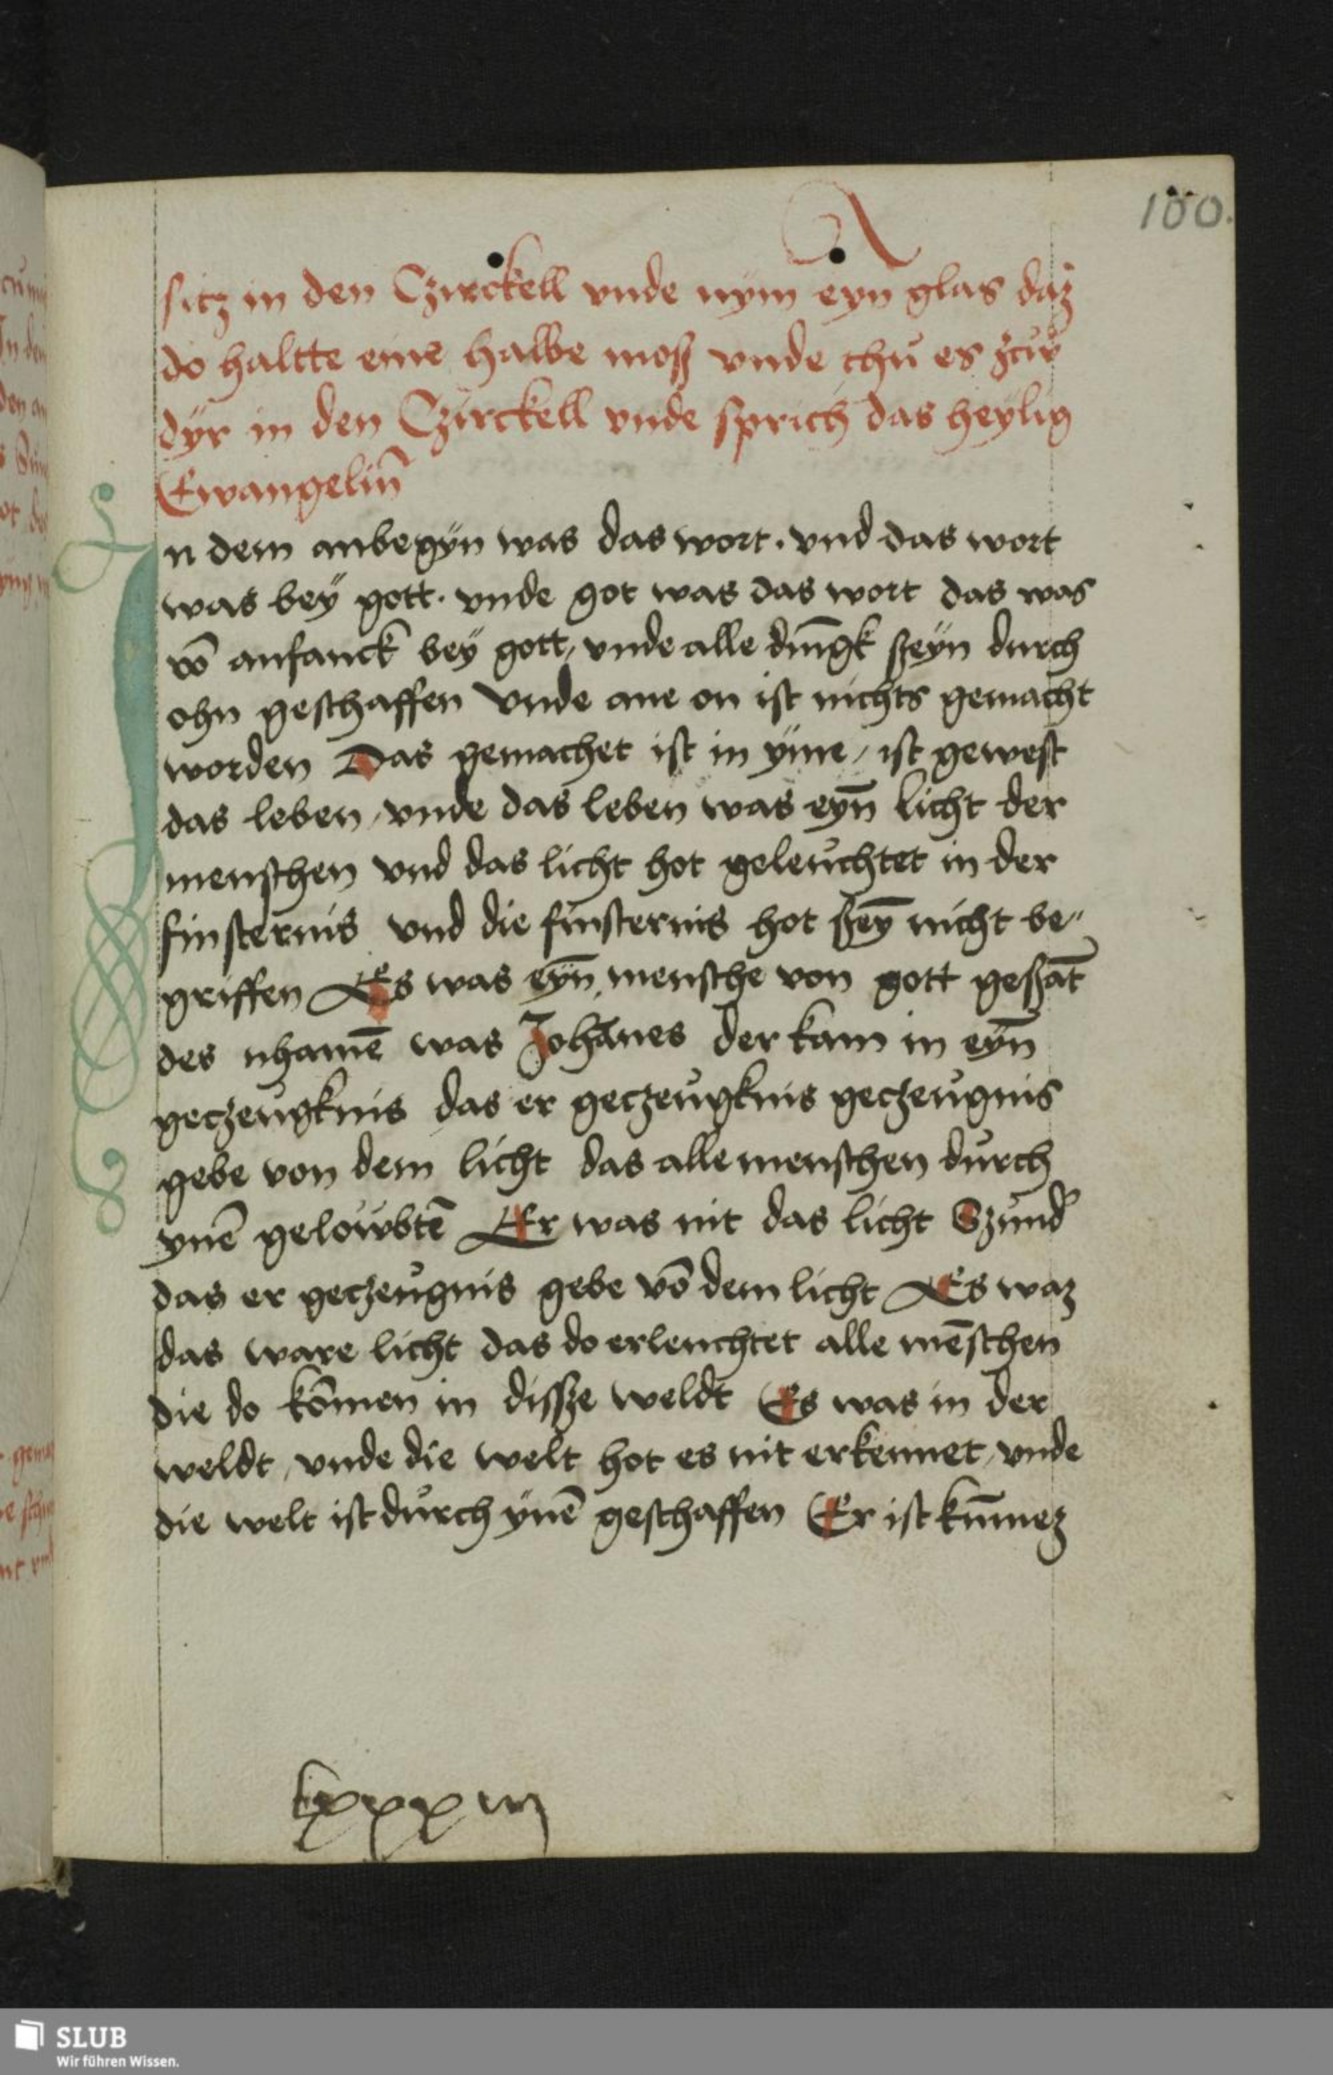 100.
sitz in den Czirckell vnde nÿm eyn glas daz
do haltte eine halbe moß vnde thu es zcur
dÿr in den Czirckell vnde sprich das heÿlig
Ewangeliū
In dem anbegÿn was das wort. vnd das wort
was beÿ gott. vnde got was das wort das was
vō anfanck beÿ gott, vnde alle dīngk szeÿn durch
ohn geschaffen Vnde ane on ist nichts gemacht
worden Das gemachet ist in ÿme, ist gewest
das leben, vnde das leben was eyn̄ licht der
menschen vnd das licht hot geleuchtet in der
finsternis vnd die finsternis hot szeȳ nicht be„
griffen Es was eyn̄ mensche von gott geßāt
des nhamē was Johānes der kam in eyn̄
geczeugknis das er geczeugknis geczeugnis
gebe von dem licht das alle menschen durch
ynē gelowbtē Er was nit das licht Szund'
das er geczeugnis gebe vō dem licht Es waz
das ware licht das do erleuchtet alle mēschen
die do kōmen in disße weldt Es was in der
weldt, vnde die welt hot es nit erkennet, vnde
die welt ist durch ÿnē geschaffen Er ist kūmez
lxxxiij
SLUB
Wir führen Wissen.